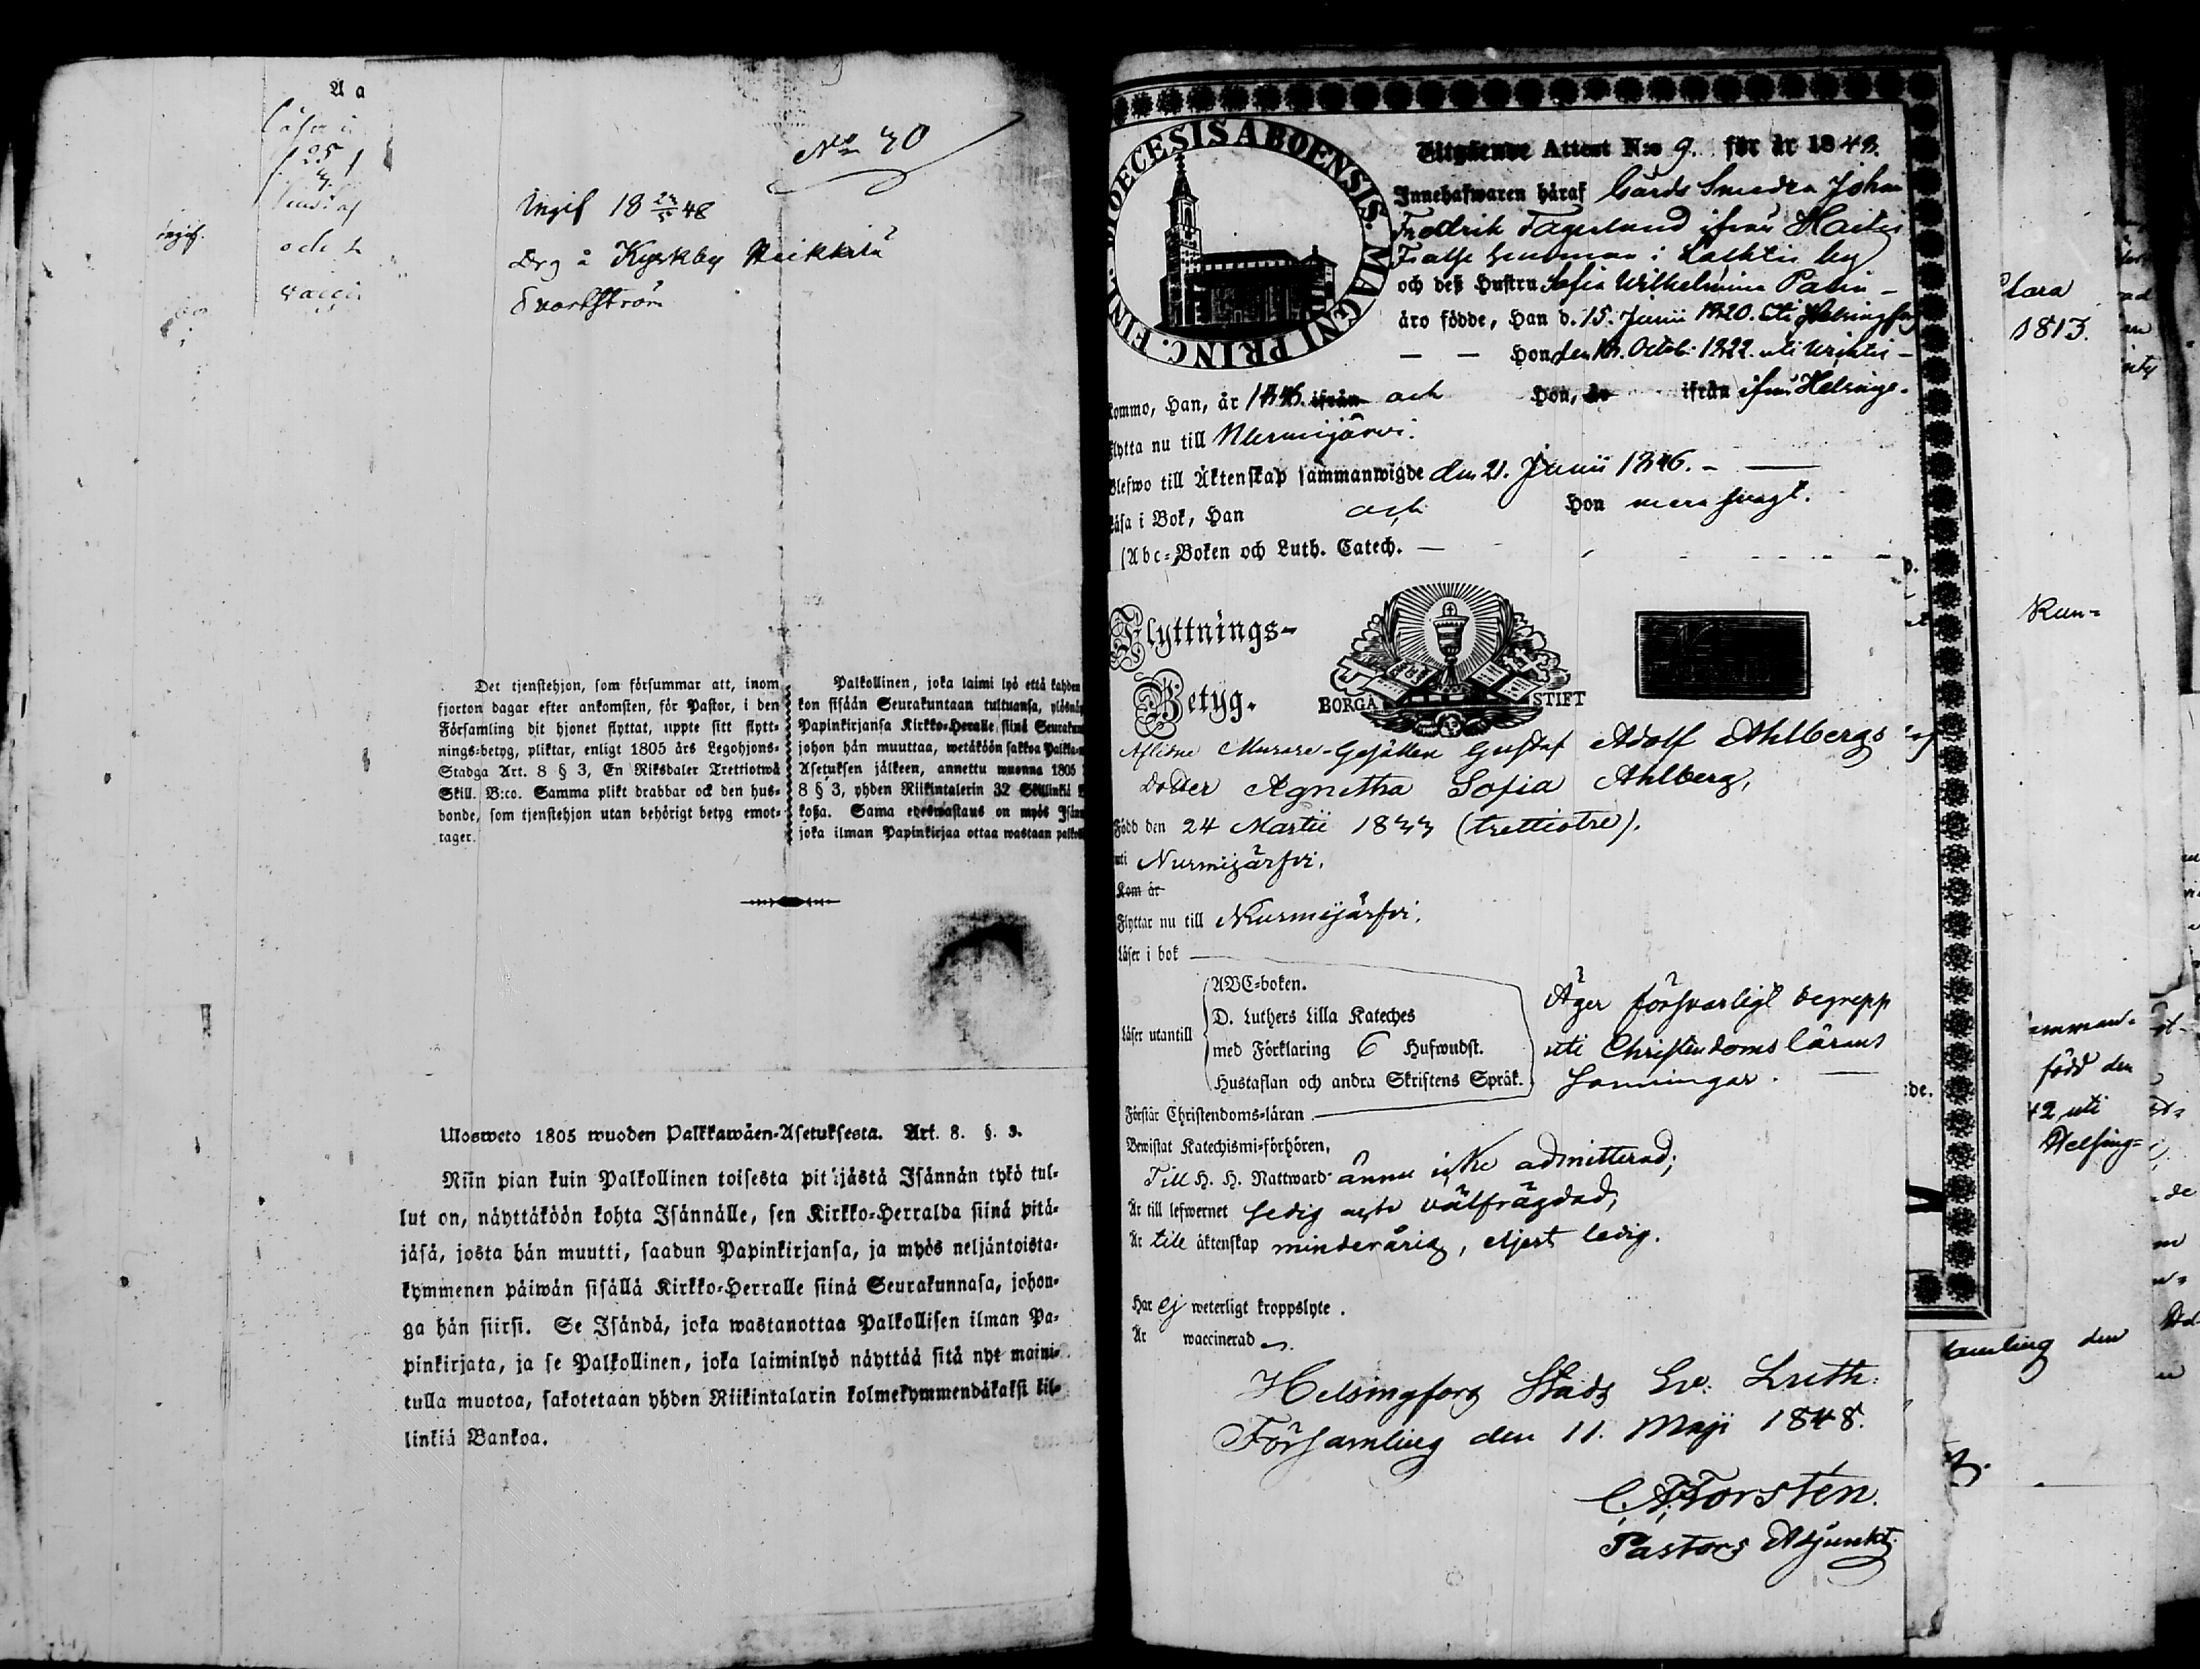 A a
25
ingif.
och
vacci
No 30
Ingif 18 23/5 48
Drg å Kyrkby Heikkilä
Svartström
Det tjenstehjon, som försummar att, inom
fjorton dagar efter ankomsten, för Pastor, i den
Församling dit hjonet flyttat, uppte sitt flytt-
nings-betyg, pliktar, enligt 1805 års Legohjons-
Stadga Art. 8 § 3, En Riksdaler Trettiotwå
Skill. B:co. Samma plikt drabbar ock den hus-
bonde, som tjenstehjon utan behörigt betyg emot-
tager.
Palkollinen, joka laimi lyö että kahden
kon sisään Seurakuntaan tultuansa, ylösnä
Papinkirjansa Kirkko-Herralle siinä Seurakun
johon hän muuttaa, wetäköön sakkoa Palkka-
Asetuksen jälkeen, annettu wuonna 1805
8 § 3, yhden Riikintalerin 32 Skillinkiä
koßa. Sama edeswastaus on myös Isän
joka ilman Papinkirjaa ottaa wastaan palkol
Ulosweto 1805 wuoden Palkkawäen-Asetuksesta. Art. 8. §. 3.
Niin pian kuin Palkollinen toisesta pitäjästä Isännän tykö tul-
lut on, näyttäköön kohta Isännälle, sen Kirkko-Herralda siinä pitä-
jäsä, josta hän muutti, saadun Papinkirjansa, ja myös neljäntoista-
kymmenen päiwän sisällä Kirkko-Herralle siinä Seurakunnasa, johon-
ga hän siirsi. Se Isändä, joka wastanottaa Palkollisen ilman Pa-
pinkirjata, ja se Palkollinen, joka laiminlyö näyttää sitä nyt maini-
tulla muotoa, sakotetaan yhden Riikintalarin kolmekymmendäkaksi kil-
linkiä Bankoa.
DIOECESIS ABOENSIS. MAGNI PRINC. FINL.
Utgående Attest N:o 9. för år 1848.
Innehafwaren häraf Gårds Smeden Johan
Fredrik Fagerlund ifrån Haitis
Frälse hemman i Lachtis by
och deß Hustru Sofia Wilhelmina Palin –
äro födde, Han d. 15. Junii 1820. uti Helsingfors
– – Hon den 18. Octob. 1822. uti Wichtis –
kommo, Han, år 1846. ifrån och Hon, år ifrån ifrån Helsinge.
flytta nu till Nurmijärvi.
Blefwo till Äktenskap sammanwigde den 21. Junii 1846. –
Läsa i Bok, Han och Hon mera svagt.
(Abc-Boken och Luth. Catech. –
Flyttnings-
Betyg.
BORGÅ STIFT
Aflidne Murare-Gesällen Gustaf Adolf Ahlbergs
Dotter Agnetha Sofia Ahlberg,
Född den 24 Martii 1833 (trettiotre).
uti Nurmijärfvi,
Kom år
Flyttar nu till Nurmijärfvi.
Läser i bok
Läser utantill
ABC-boken.
D. Luthers Lilla Kateches
med Förklaring 6 Hufwudst.
Hustaflan och andra Skriftens Språk.
Äger försvarligt begrepp
uti Christendomslärans
sanningar.
Förstår Christendoms-läran
Bewistat Katechismi-förhören,
Till H. H. Nattward ännu icke admitterad;
Är till lefwernet sedig och välfrägdad,
Är till äktenskap minderårig, eljest ledig.
Har ej weterligt kroppslyte.
Är waccinerad
Helsingfors Stads Ev. Luth.
Församling den 11. Maji 1848.
C. A. Forstén.
Pastors Adjunkt.
Clara
1813.
Run-
samman-
född den
42 uti
Helsing-
samling den